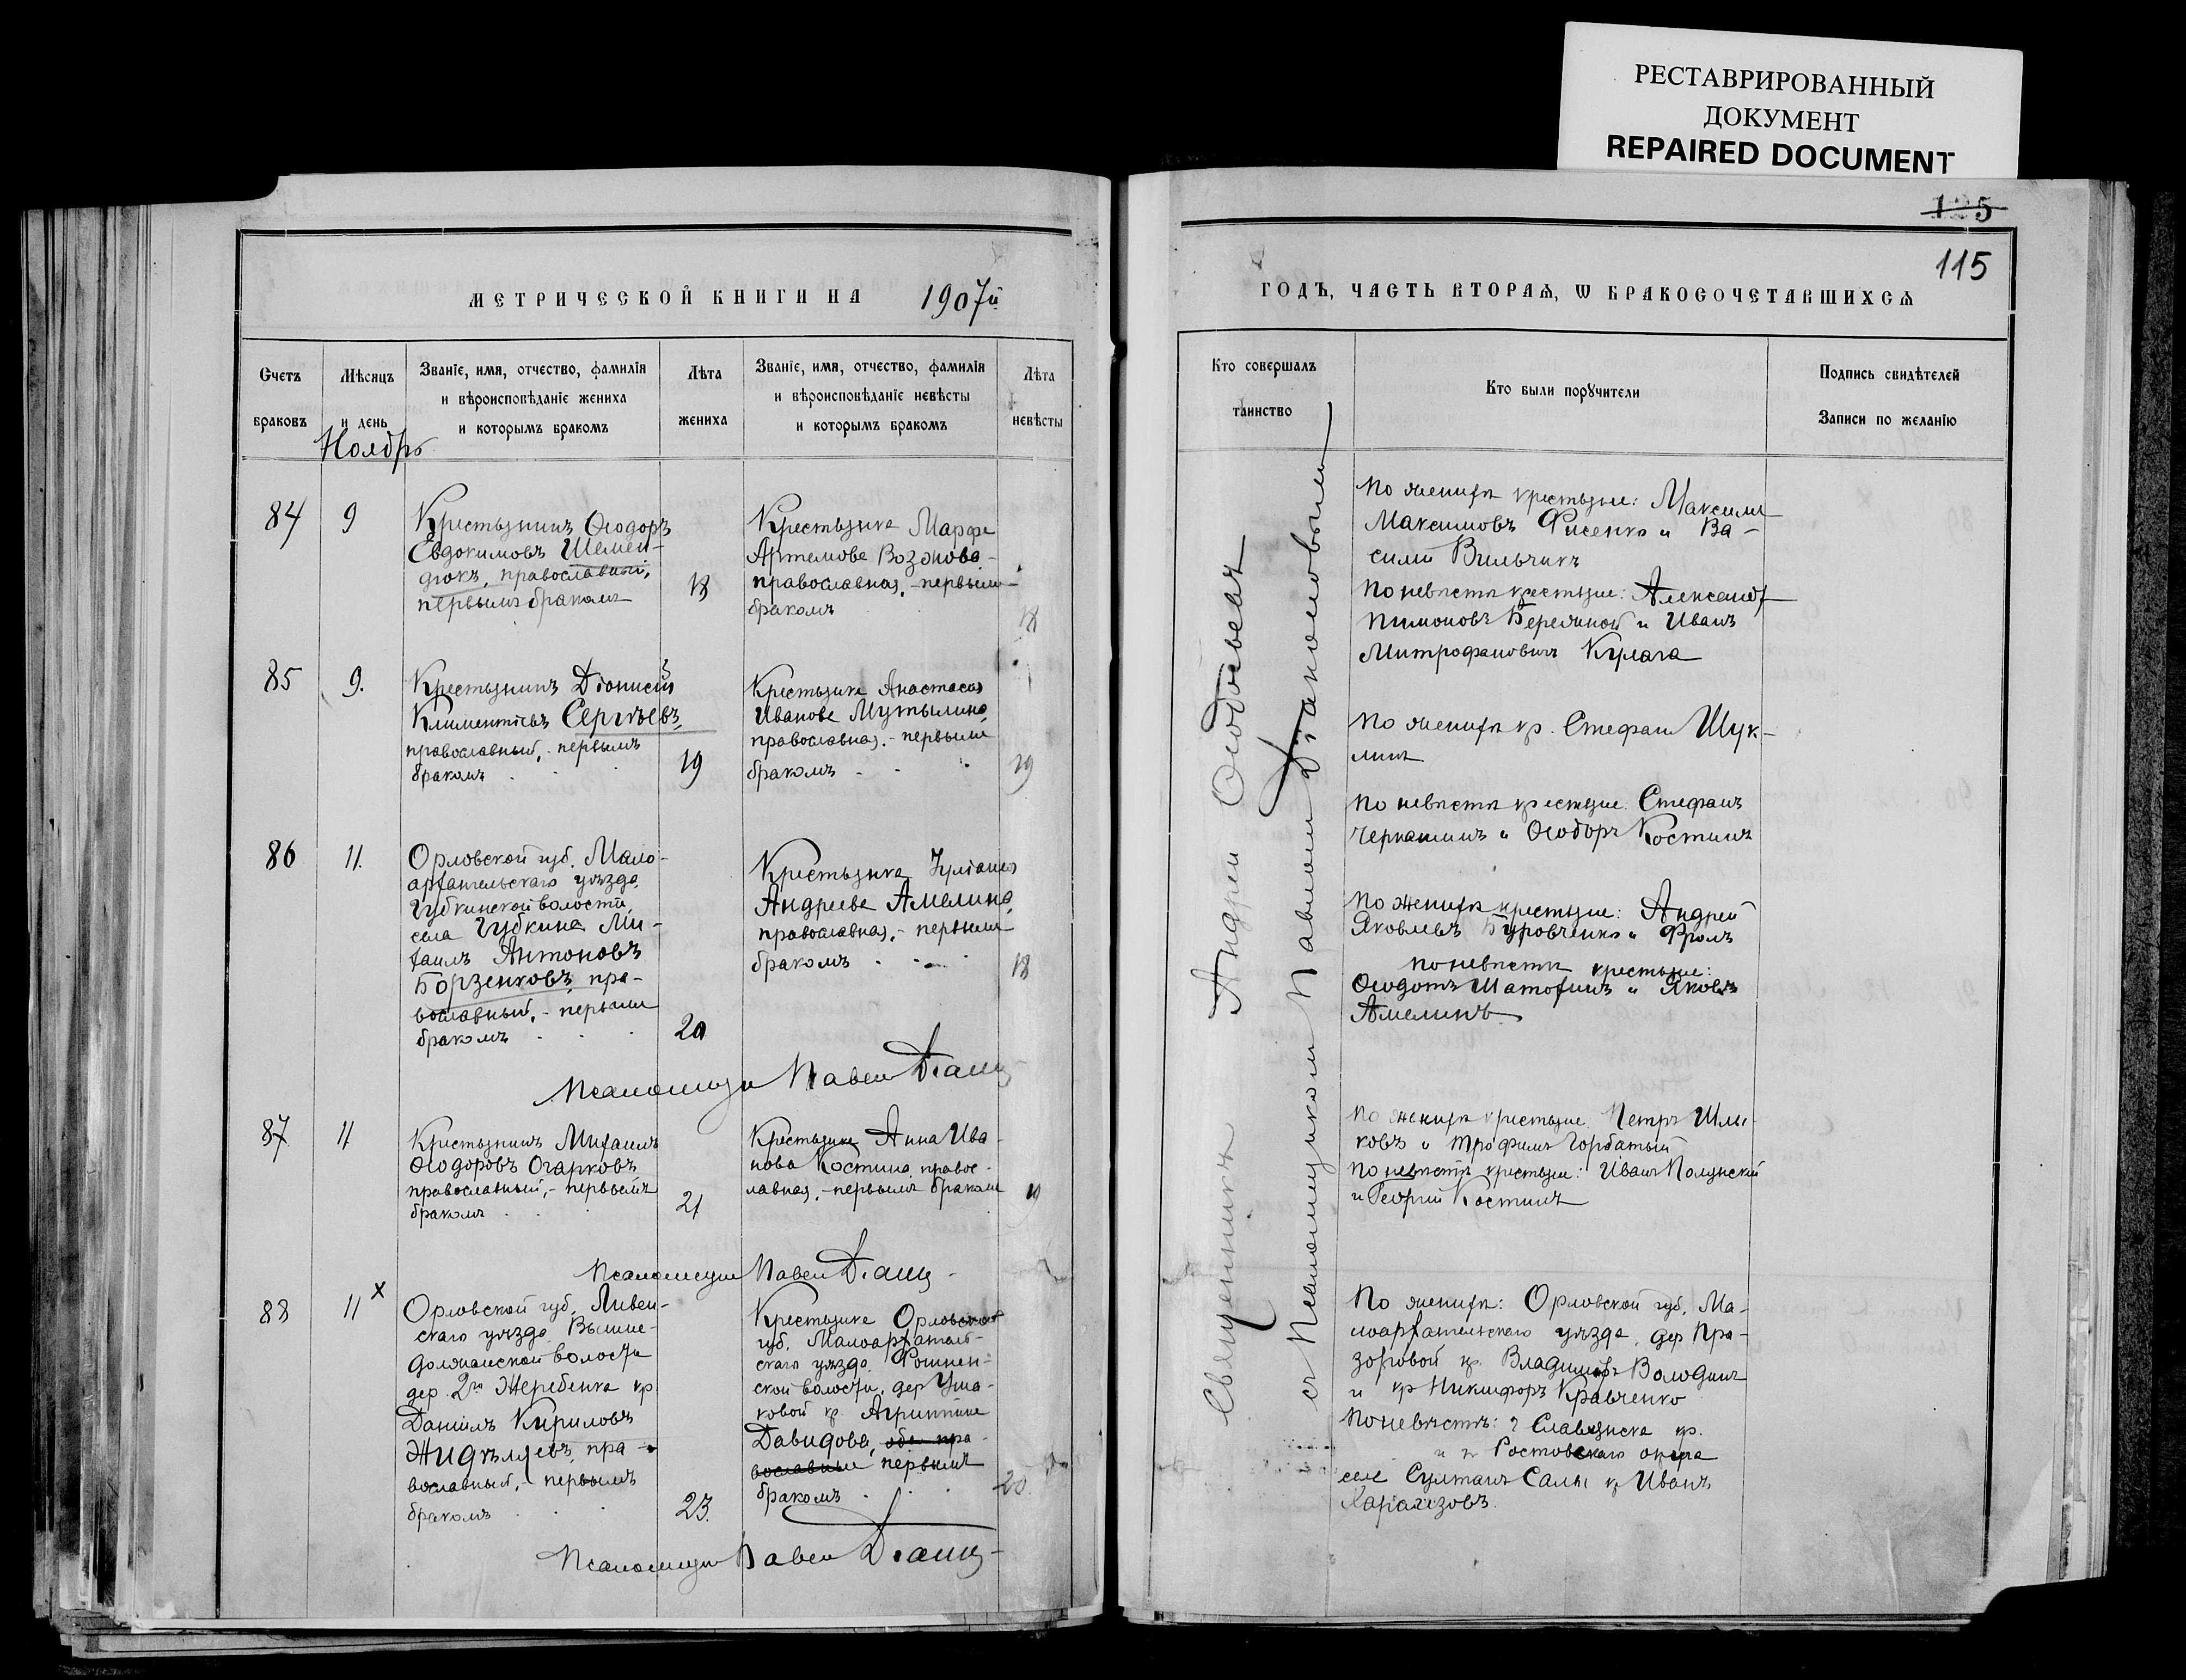 РЕСТАВРИРОВАННЫЙ
ДОКУМЕНТ
REPAIRED DOCUMENT
МЕТРИЧЕСКОЙ КНИГИ НА 1907й
Счетъ
браковъ
Мѣсяцъ
и день
Ноябрь
Званіе, имя, отчество, фамилія
и вѣроисповѣданіе жениха
и которымъ бракомъ
Лѣта
жениха
Званіе, имя, отчество, фамилія
и вѣроисповѣданіе невѣсты
и которымъ бракомъ
Лѣта
невѣсты
84
9
Крестьянинъ Ѳеодоръ
Евдокимовъ Шемен-
дюкъ, православный,
первымъ бракомъ
18
Крестьянка Марфа
Артемова Возэнова
православная, - первымъ
бракомъ
18
85
9.
Крестьянинъ Діонисій
Климентіевъ Сергѣевъ,
православный, - первымъ
бракомъ
19
Крестьянка Анастасія
Иванова Мутылина,
православная, - первымъ
бракомъ
19
86
11.
Орловской губ. Мало-
архангельскаго уѣзда,
Губкинской волости,
села Губкина Ми-
хаилъ Антоновъ
Борзенковъ, пра-
вославный, - первымъ
бракомъ
20
Крестьянка Іуліанія
Андреева Амелина,
православная, - первымъ
бракомъ
18
Псаломщикъ Павелъ
87
11
Крестьянинъ Михаилъ
Ѳеодоровъ Огарковъ,
православный, - первымъ
бракомъ
21
Крестьянка Анна Ива-
нова Костина, правос-
лавная, - первымъ бракомъ
Псаломщикъ Павелъ
88
11 x
Орловской губ. Ливен-
скаго уѣзда, Вышне-
Должанской волости
дер. 2я Жеребенка кр.
Даніилъ Кириловъ
Жидѣляевъ, пра-
вославный, - первымъ
бракомъ
23.
Крестьянка Орловской
губ. Малоархангель-
скаго уѣзда,
ской волости, дер. Уша-
ковой кр. Агриппина
Давидова, оба пра-
вославные первымъ
бракомъ
20
Псаломщикъ Павелъ
125
115
ГОДЪ, ЧАСТЬ ВТОРАЯ, Ѡ БРАКОСОЧЕТАВШИХСЯ
Кто совершалъ
таинство
Кто были поручители
Подпись свидѣтелей
Записи по желанію
Священникъ Андрей
съ Псаломщикомъ Павломъ Діакономовымъ
По женихѣ крестьяне: Максимъ
Максимовъ Фисенко и Ва-
силій Вильчикъ
По невѣстѣ крестьяне: Александръ
Пимоновъ Бережной и Иванъ
Митрофановичъ Кулага
По женихѣ кр. Стефанъ Шук-
линъ
По невѣстѣ крестьяне: Стефанъ
Черкашинъ и Ѳеодоръ Костинъ
По женихѣ крестьяне: Андрей
Яковлевъ Буровченко и Фролъ
по невѣстѣ крестьяне:
Ѳеодотъ Шатохинъ и Яковъ
Амелинъ
По женихѣ крестьяне Петръ Шлы-
ковъ и Трофимъ Горбатый
По невѣстѣ крестьяне: Иванъ Полунскій
и Георгій Костинъ
По женихѣ: Орловской губ. Ма-
лоархангельскаго уѣзда, дер. Про-
зоровой кр. Владиміръ Володинъ
и кр Никифоръ Кравченко
По невѣстѣ: г Славянска кр.
и Ростовскаго округа
селе Султанъ Салы кр Иванъ